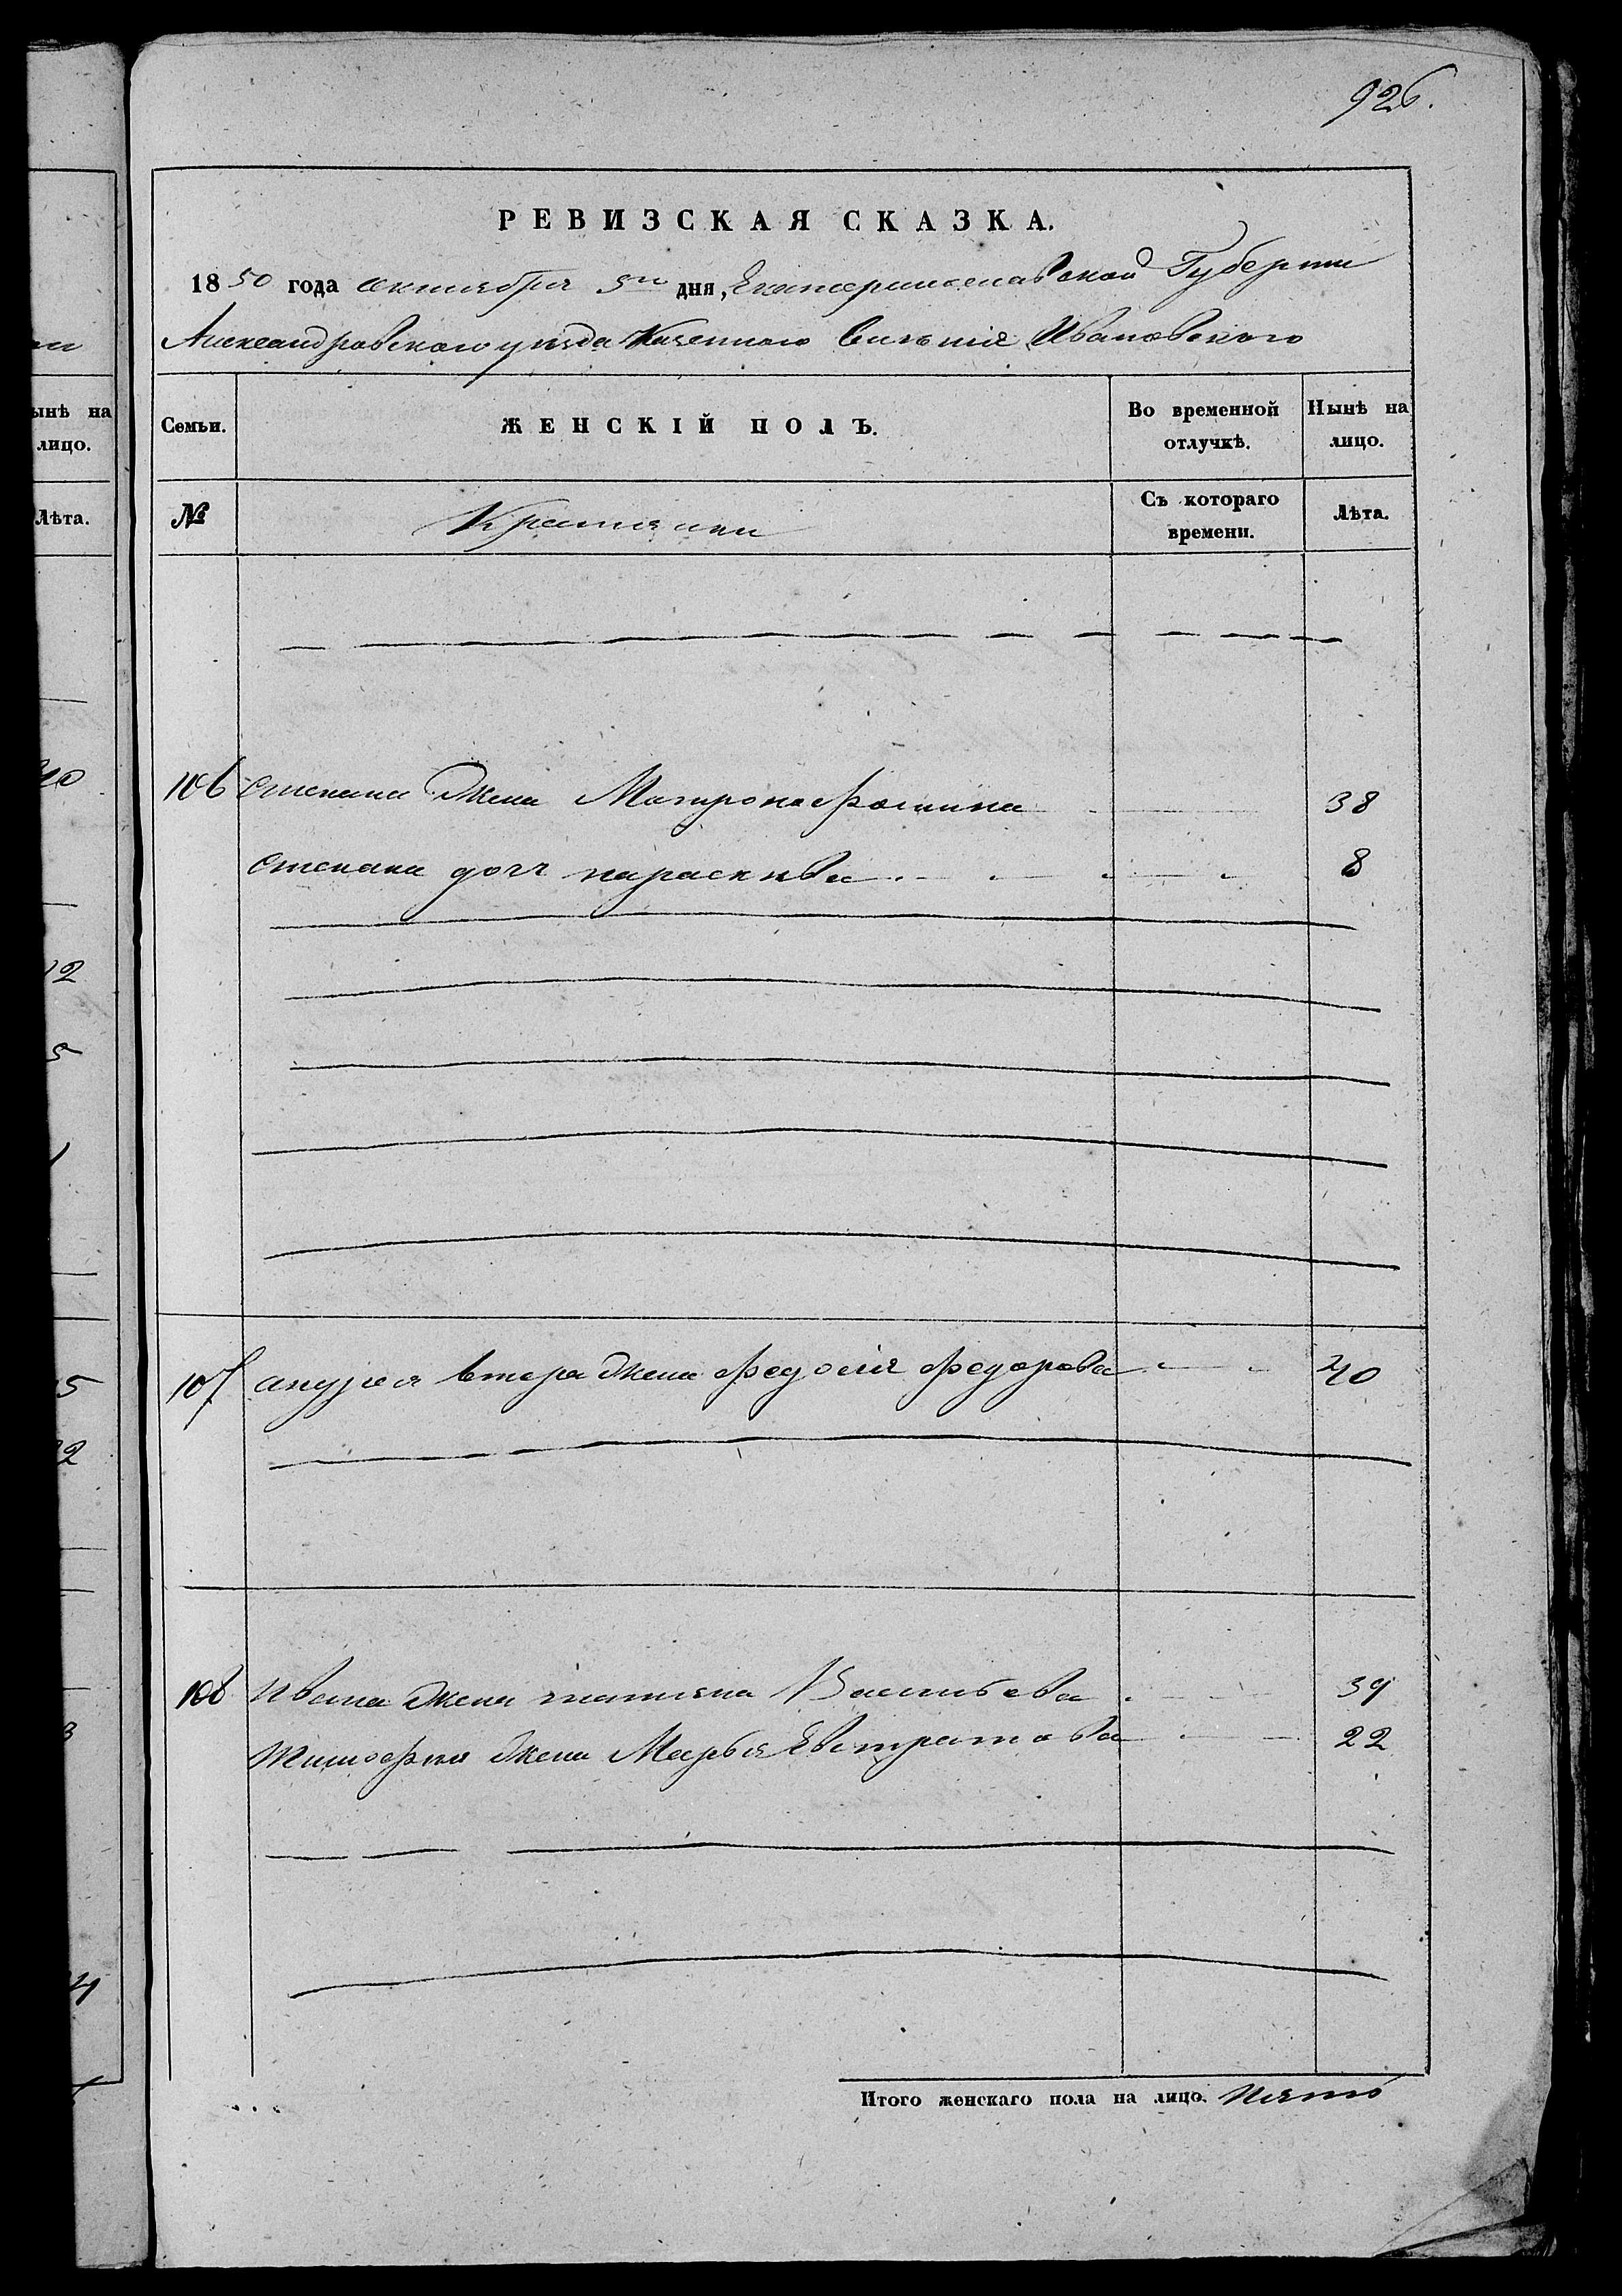 926.
РЕВИЗСКАЯ СКАЗКА.
1850 года октября 5го дня, Екатеринославской Губернии
Александровского уезда Казенного Ивановского
Семьи.
ЖЕНСКІЙ ПОЛЪ.
Во временной отлучкѣ.
Нынѣ на лицо.
№
Крестянки
Съ котораго времени.
Лѣта.
106 степана Жена Матрона Фомина 38
степана доч параскива 8
107 андрея втора Жена Федосия Федорова 40
108 ивана Жена татияна Васильева 39
тимофия Жена Марья Евстратова 22
Итого женскаго пола на лицо. пять
ынѣ на
лицо.
Лѣта.